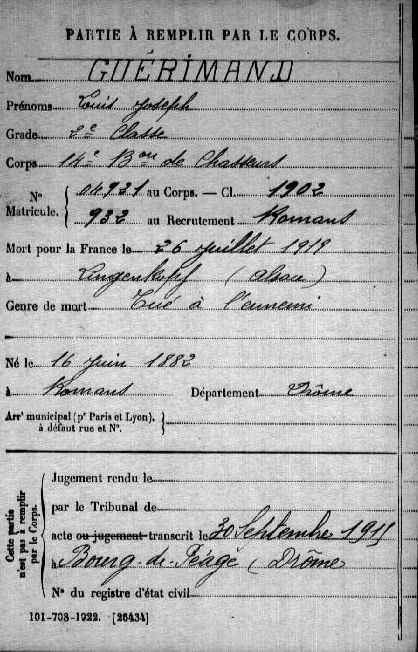 PARTIE À REMPLIR PAR LE CORPS.
Nom GUÉRIMAND
Prénoms Louis Joseph
Grade 2e Classe
Corps 14e Bon de Chasseurs
Nº Matricule. { 04921 au Corps. — Cl. 1902
932 au Recrutement Romans
Mort pour la France le 26 juillet 1915
à Lingenkopf (Alsace)
Genre de mort Tué à l'ennemi
Né le 16 Juin 1882
à Romans Département Drôme
Arrt municipal (pr Paris et Lyon). }
à défaut rue et Nº.
Cette partie n'est pas à remplir par le Corps.
Jugement rendu le
par le Tribunal de
acte ou jugement transcrit le 30 Septembre 1915
à Bourg-de-Péage (Drôme
Nº du registre d'état civil
101-708-1922. [26434]